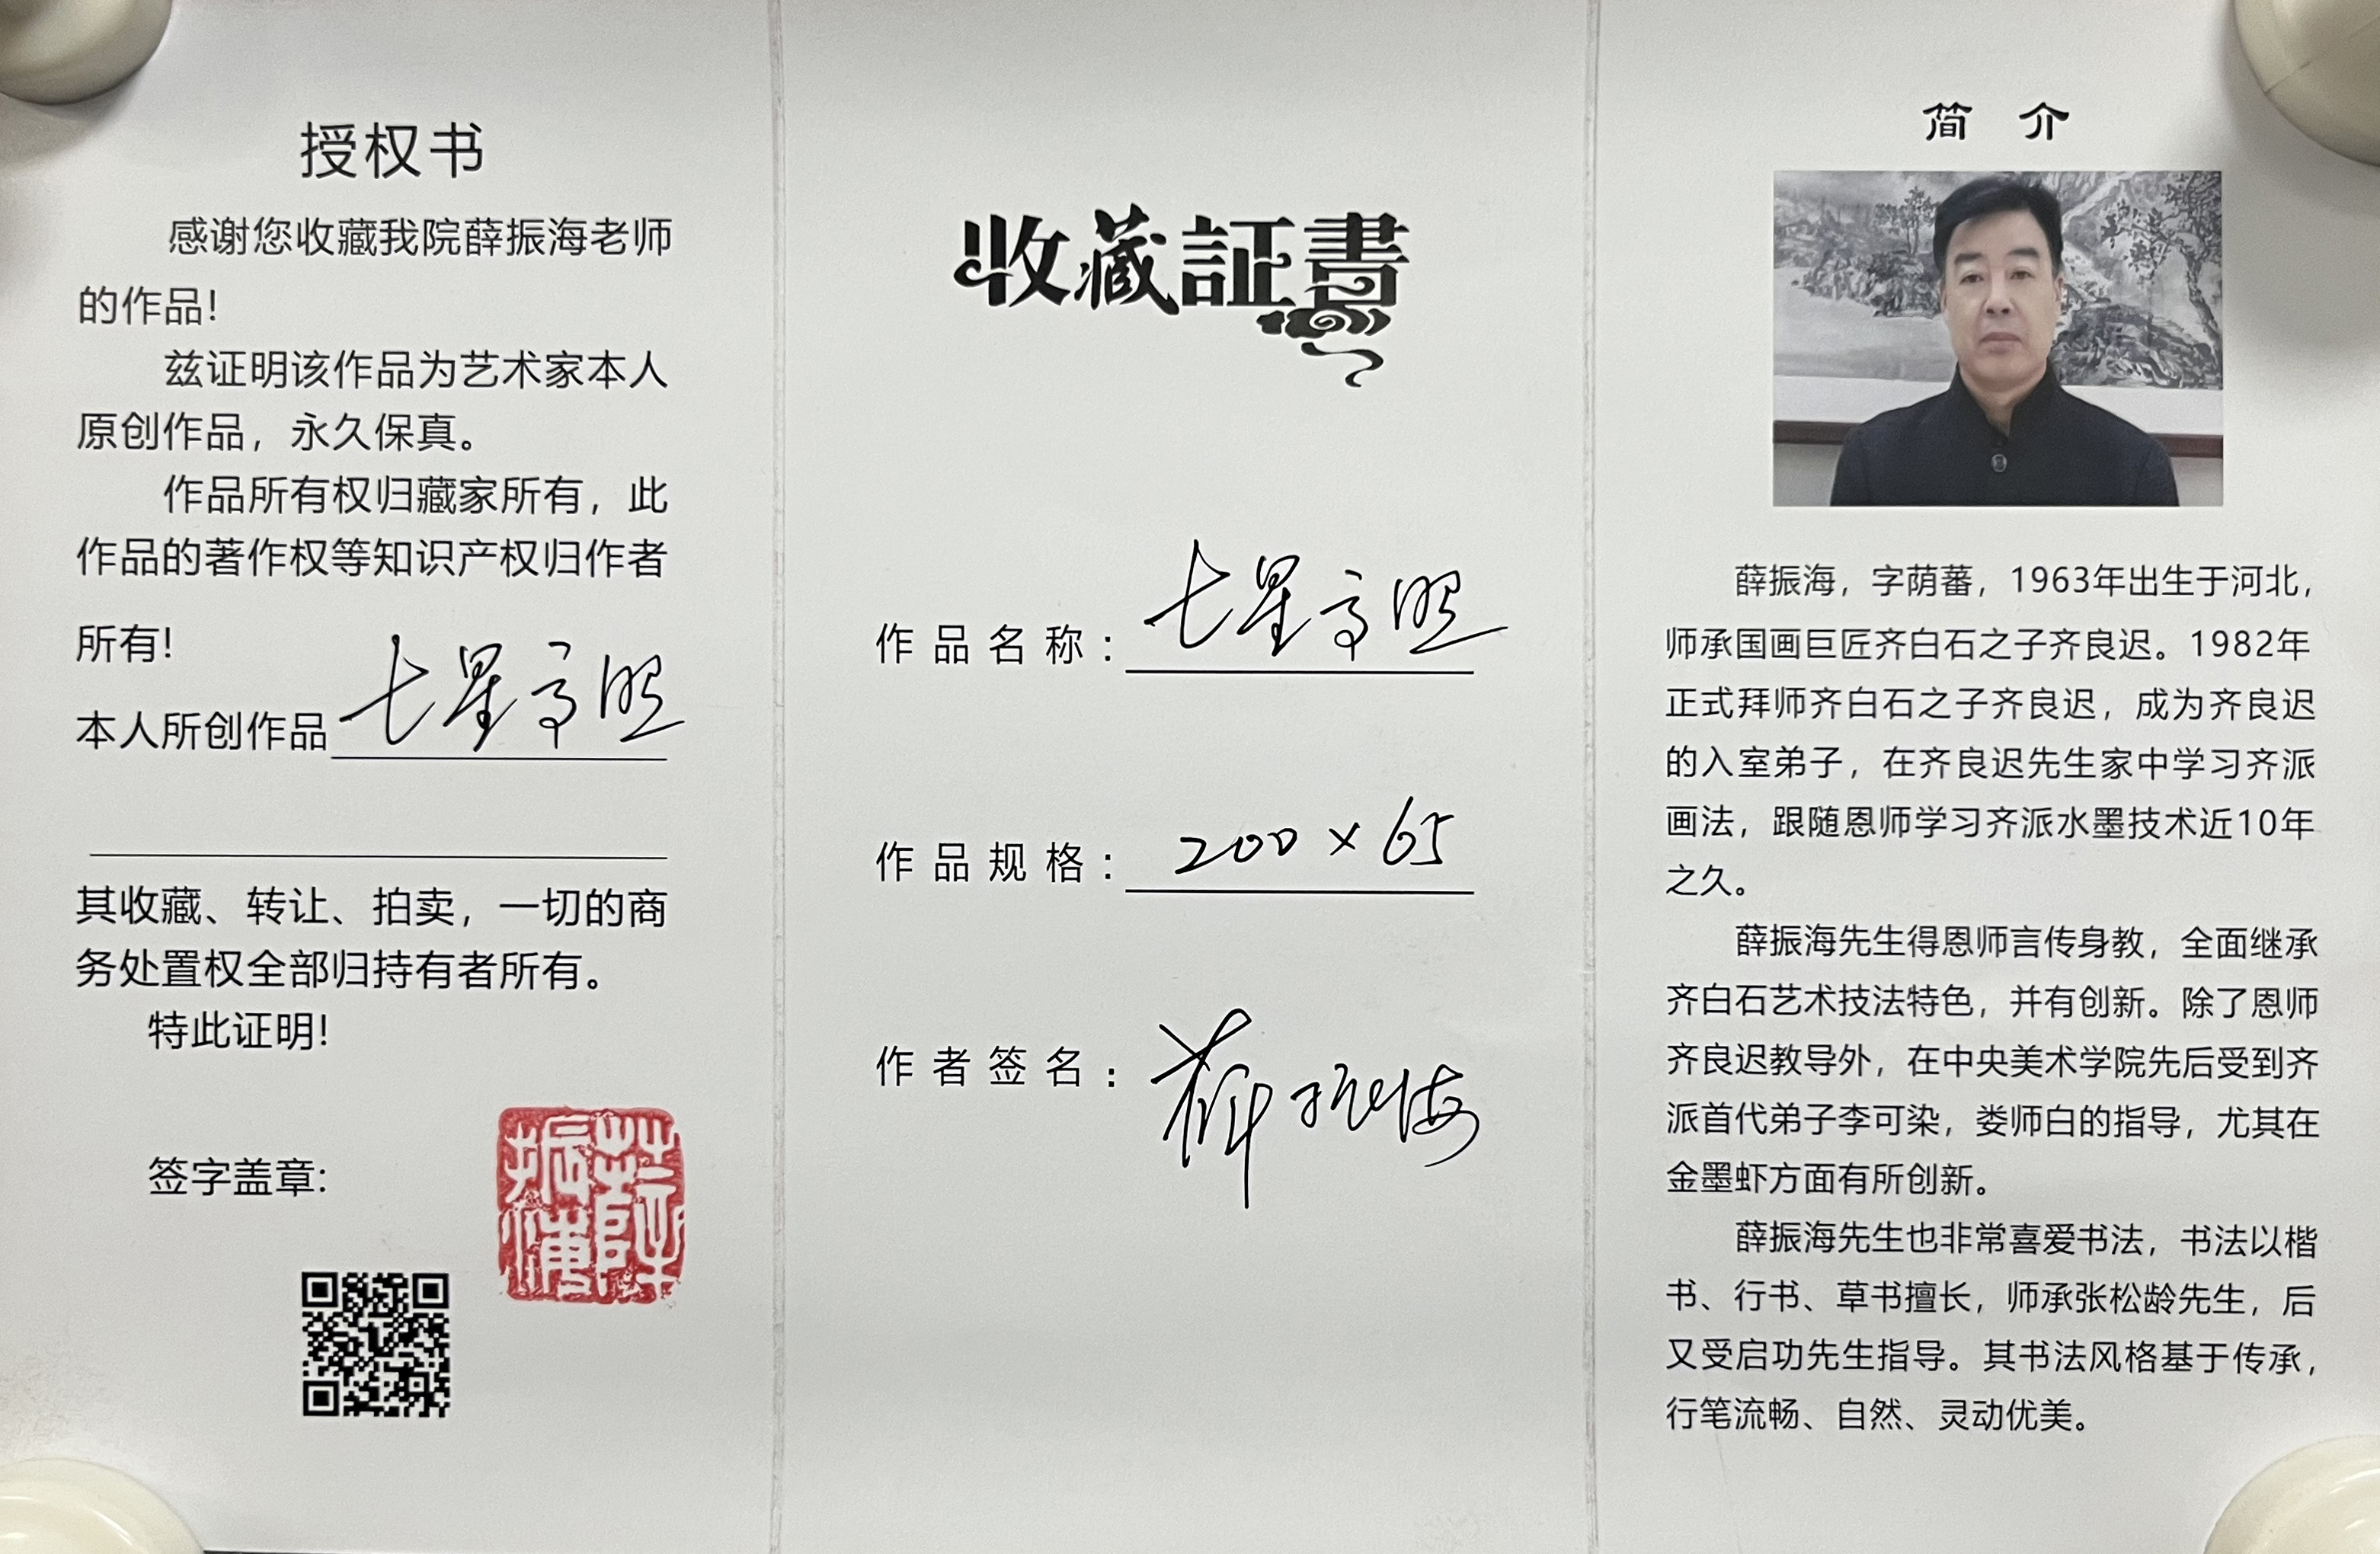 授权书
感谢您收藏我院薛振海老师
的作品!
兹证明该作品为艺术家本人
原创作品，永久保真。
作品所有权归藏家所有，此
作品的著作权等知识产权归作者
所有!
本人所创作品七星高照
其收藏、转让、拍卖，一切的商
务处置权全部归持有者所有。
特此证明!
签字盖章:
薛振海
收藏証書
作品名称：七星高照
作品规格：200×65
作者签名：薛振海
简 介
薛振海，字荫蕃，1963年出生于河北，
师承国画巨匠齐白石之子齐良迟。1982年
正式拜师齐白石之子齐良迟，成为齐良迟
的入室弟子，在齐良迟先生家中学习齐派
画法，跟随恩师学习齐派水墨技术近10年
之久。
薛振海先生得恩师言传身教，全面继承
齐白石艺术技法特色，并有创新。除了恩师
齐良迟教导外，在中央美术学院先后受到齐
派首代弟子李可染，娄师白的指导，尤其在
金墨虾方面有所创新。
薛振海先生也非常喜爱书法，书法以楷
书、行书、草书擅长，师承张松龄先生，后
又受启功先生指导。其书法风格基于传承，
行笔流畅、自然、灵动优美。